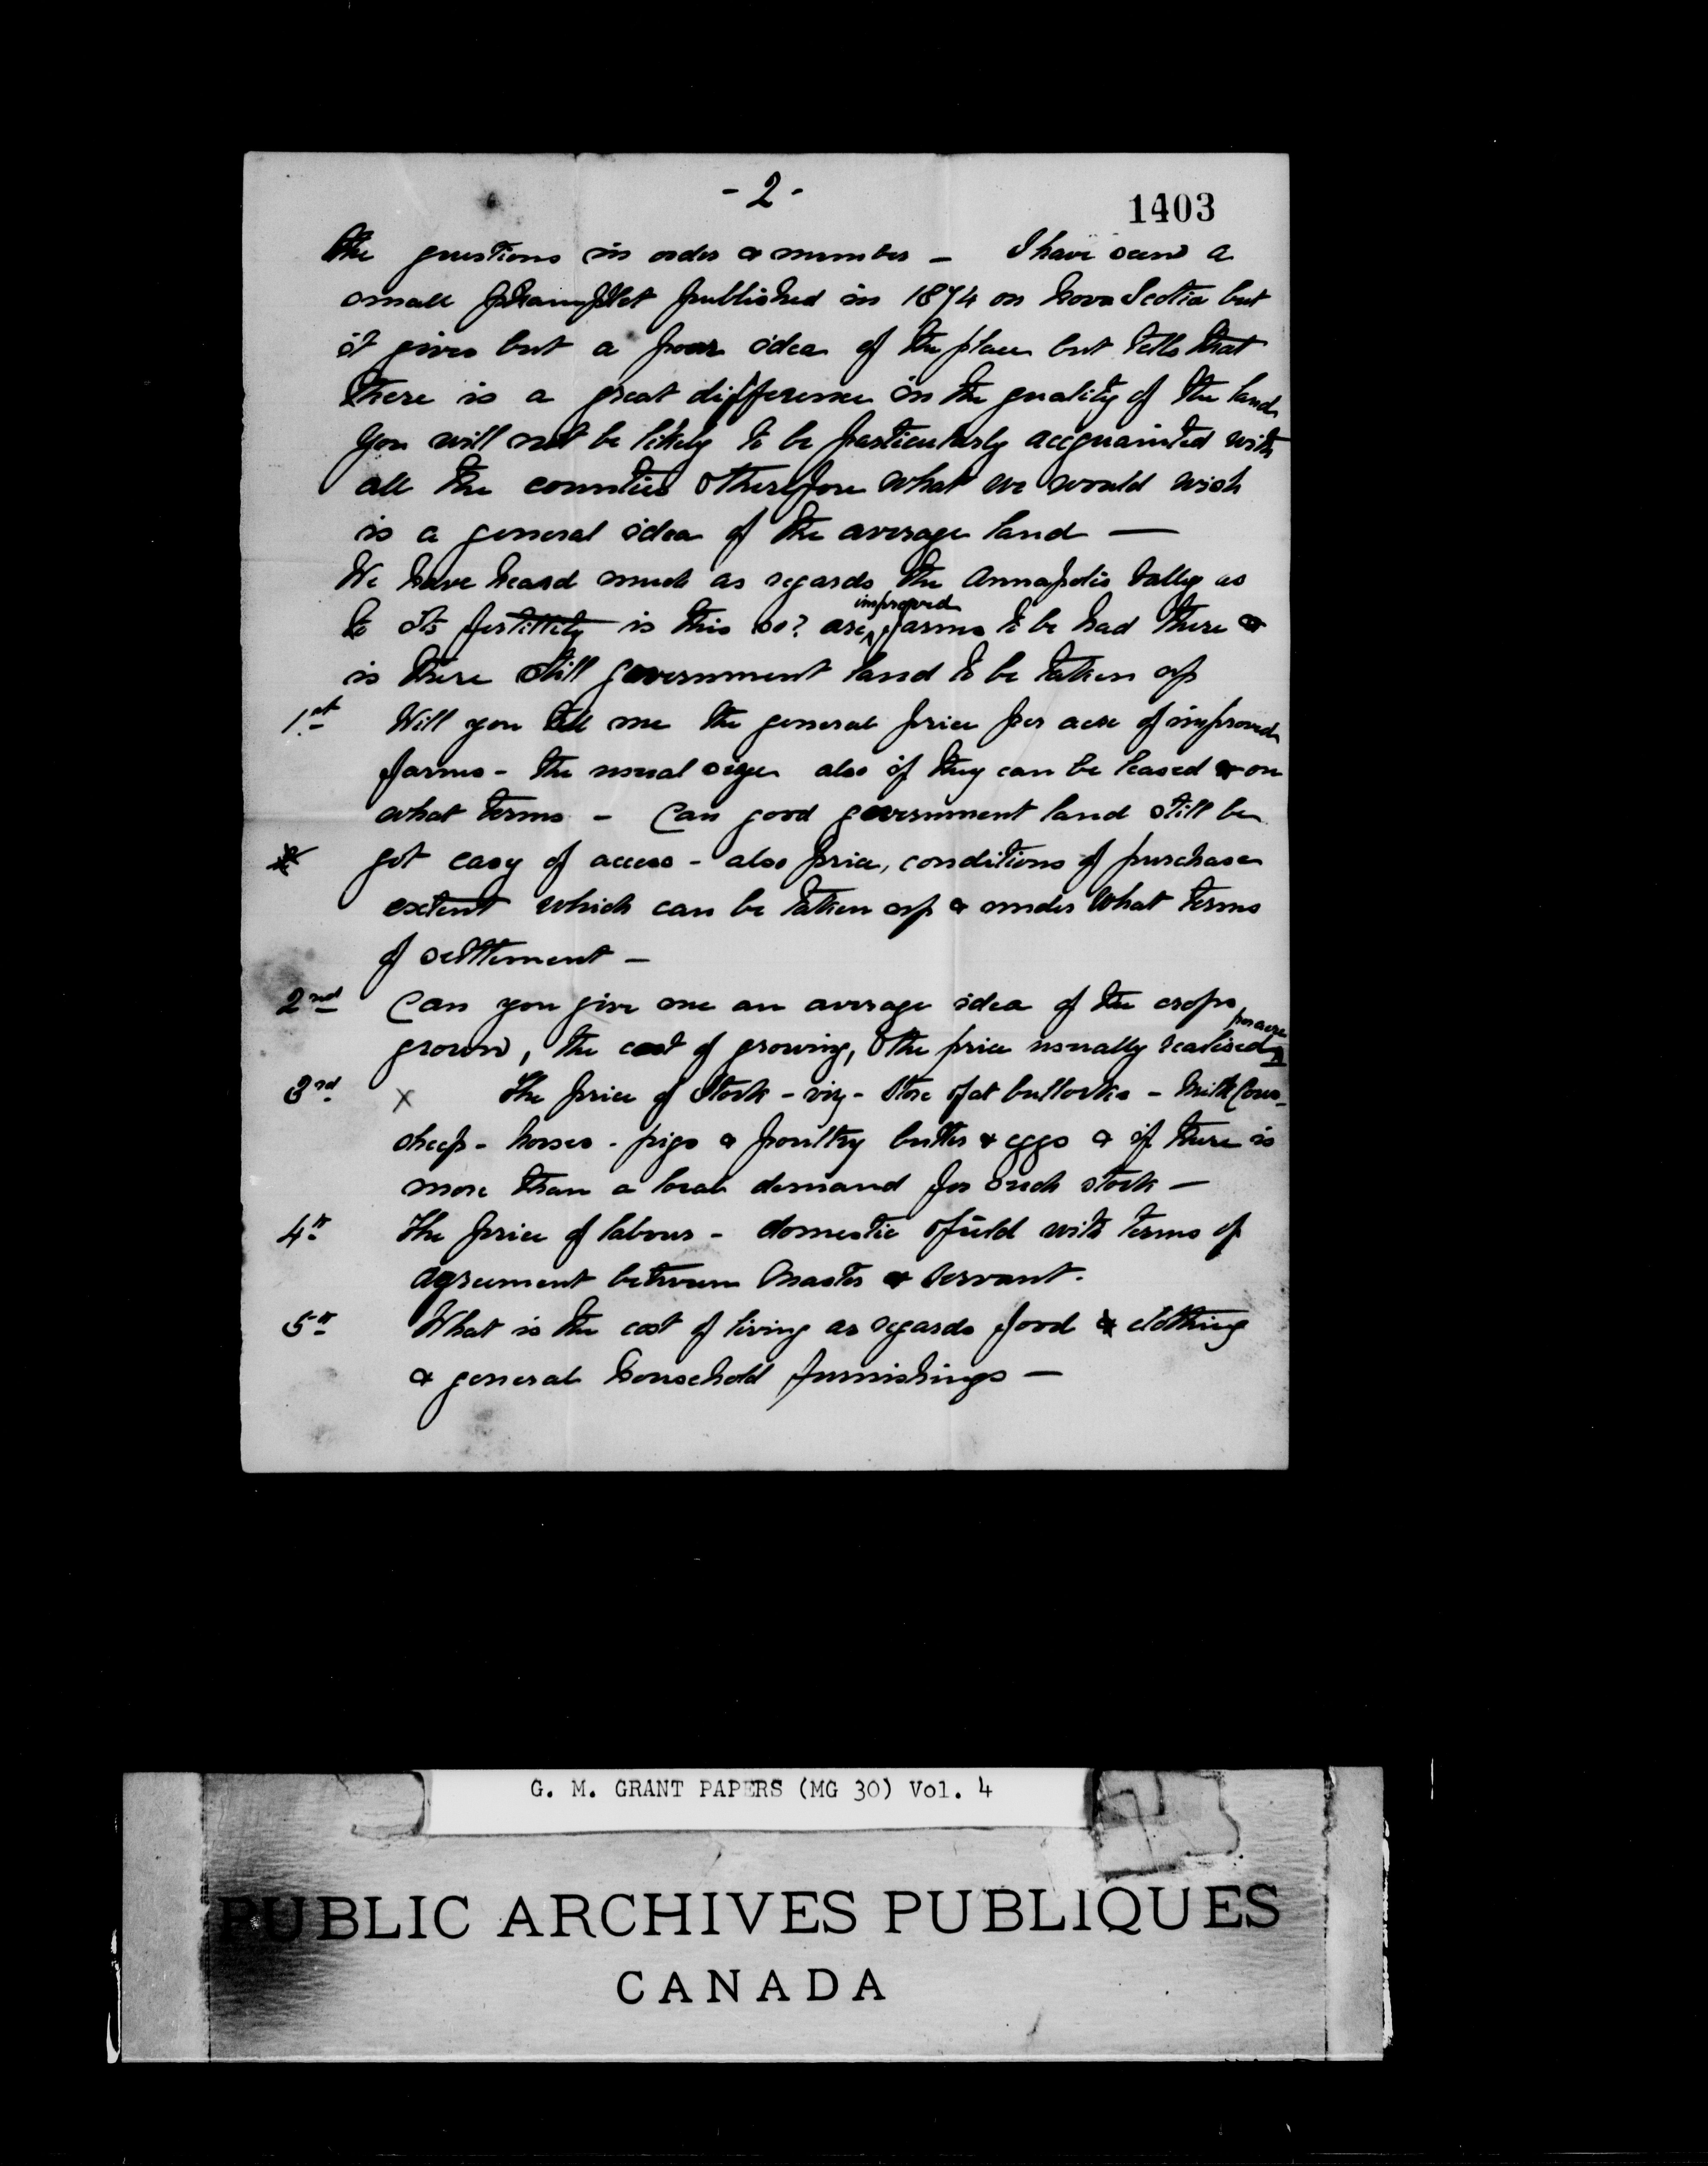 - 2 -
1403
the questions in order & number - I have seen a
small phamplet published in 1874 on Nova Scotia but
it gives but a poor idea of the place but tells that
there is a great difference in the quality of the land
you will not be likely to be particularly acquainted with
all the counties & therefore what we would wish
is a general idea of the average land —
We have heard much as regards the Annapolis Valley as
to its fertillity is this so? are improved farms to be had there or
is there still government land to be taken up
1st Will you tell me the general price per acre of improved
farms - the usual size also if they can be leased & on
what terms - Can good government land still be
got easy of access - also price, conditions of purchase
extent which can be taken up & under what terms
of settlement -
2nd Can you give me an average idea of the crops
grown, the cost of growing, & the price usually realised per acre
3rd x The price of stock - viz - store & fat bullocks - Milk Cows -
sheep - horses - pigs & poultry butter & eggs & if there is
more than a local demand for such stock -
4th The price of labour - domestic & field with terms of
agreement between Master & Servant.
5th What is the cost of living as regards food & clothing
& general household furnishings -
G. M. GRANT PAPERS (MG 30) Vol. 4
PUBLIC ARCHIVES PUBLIQUES
CANADA